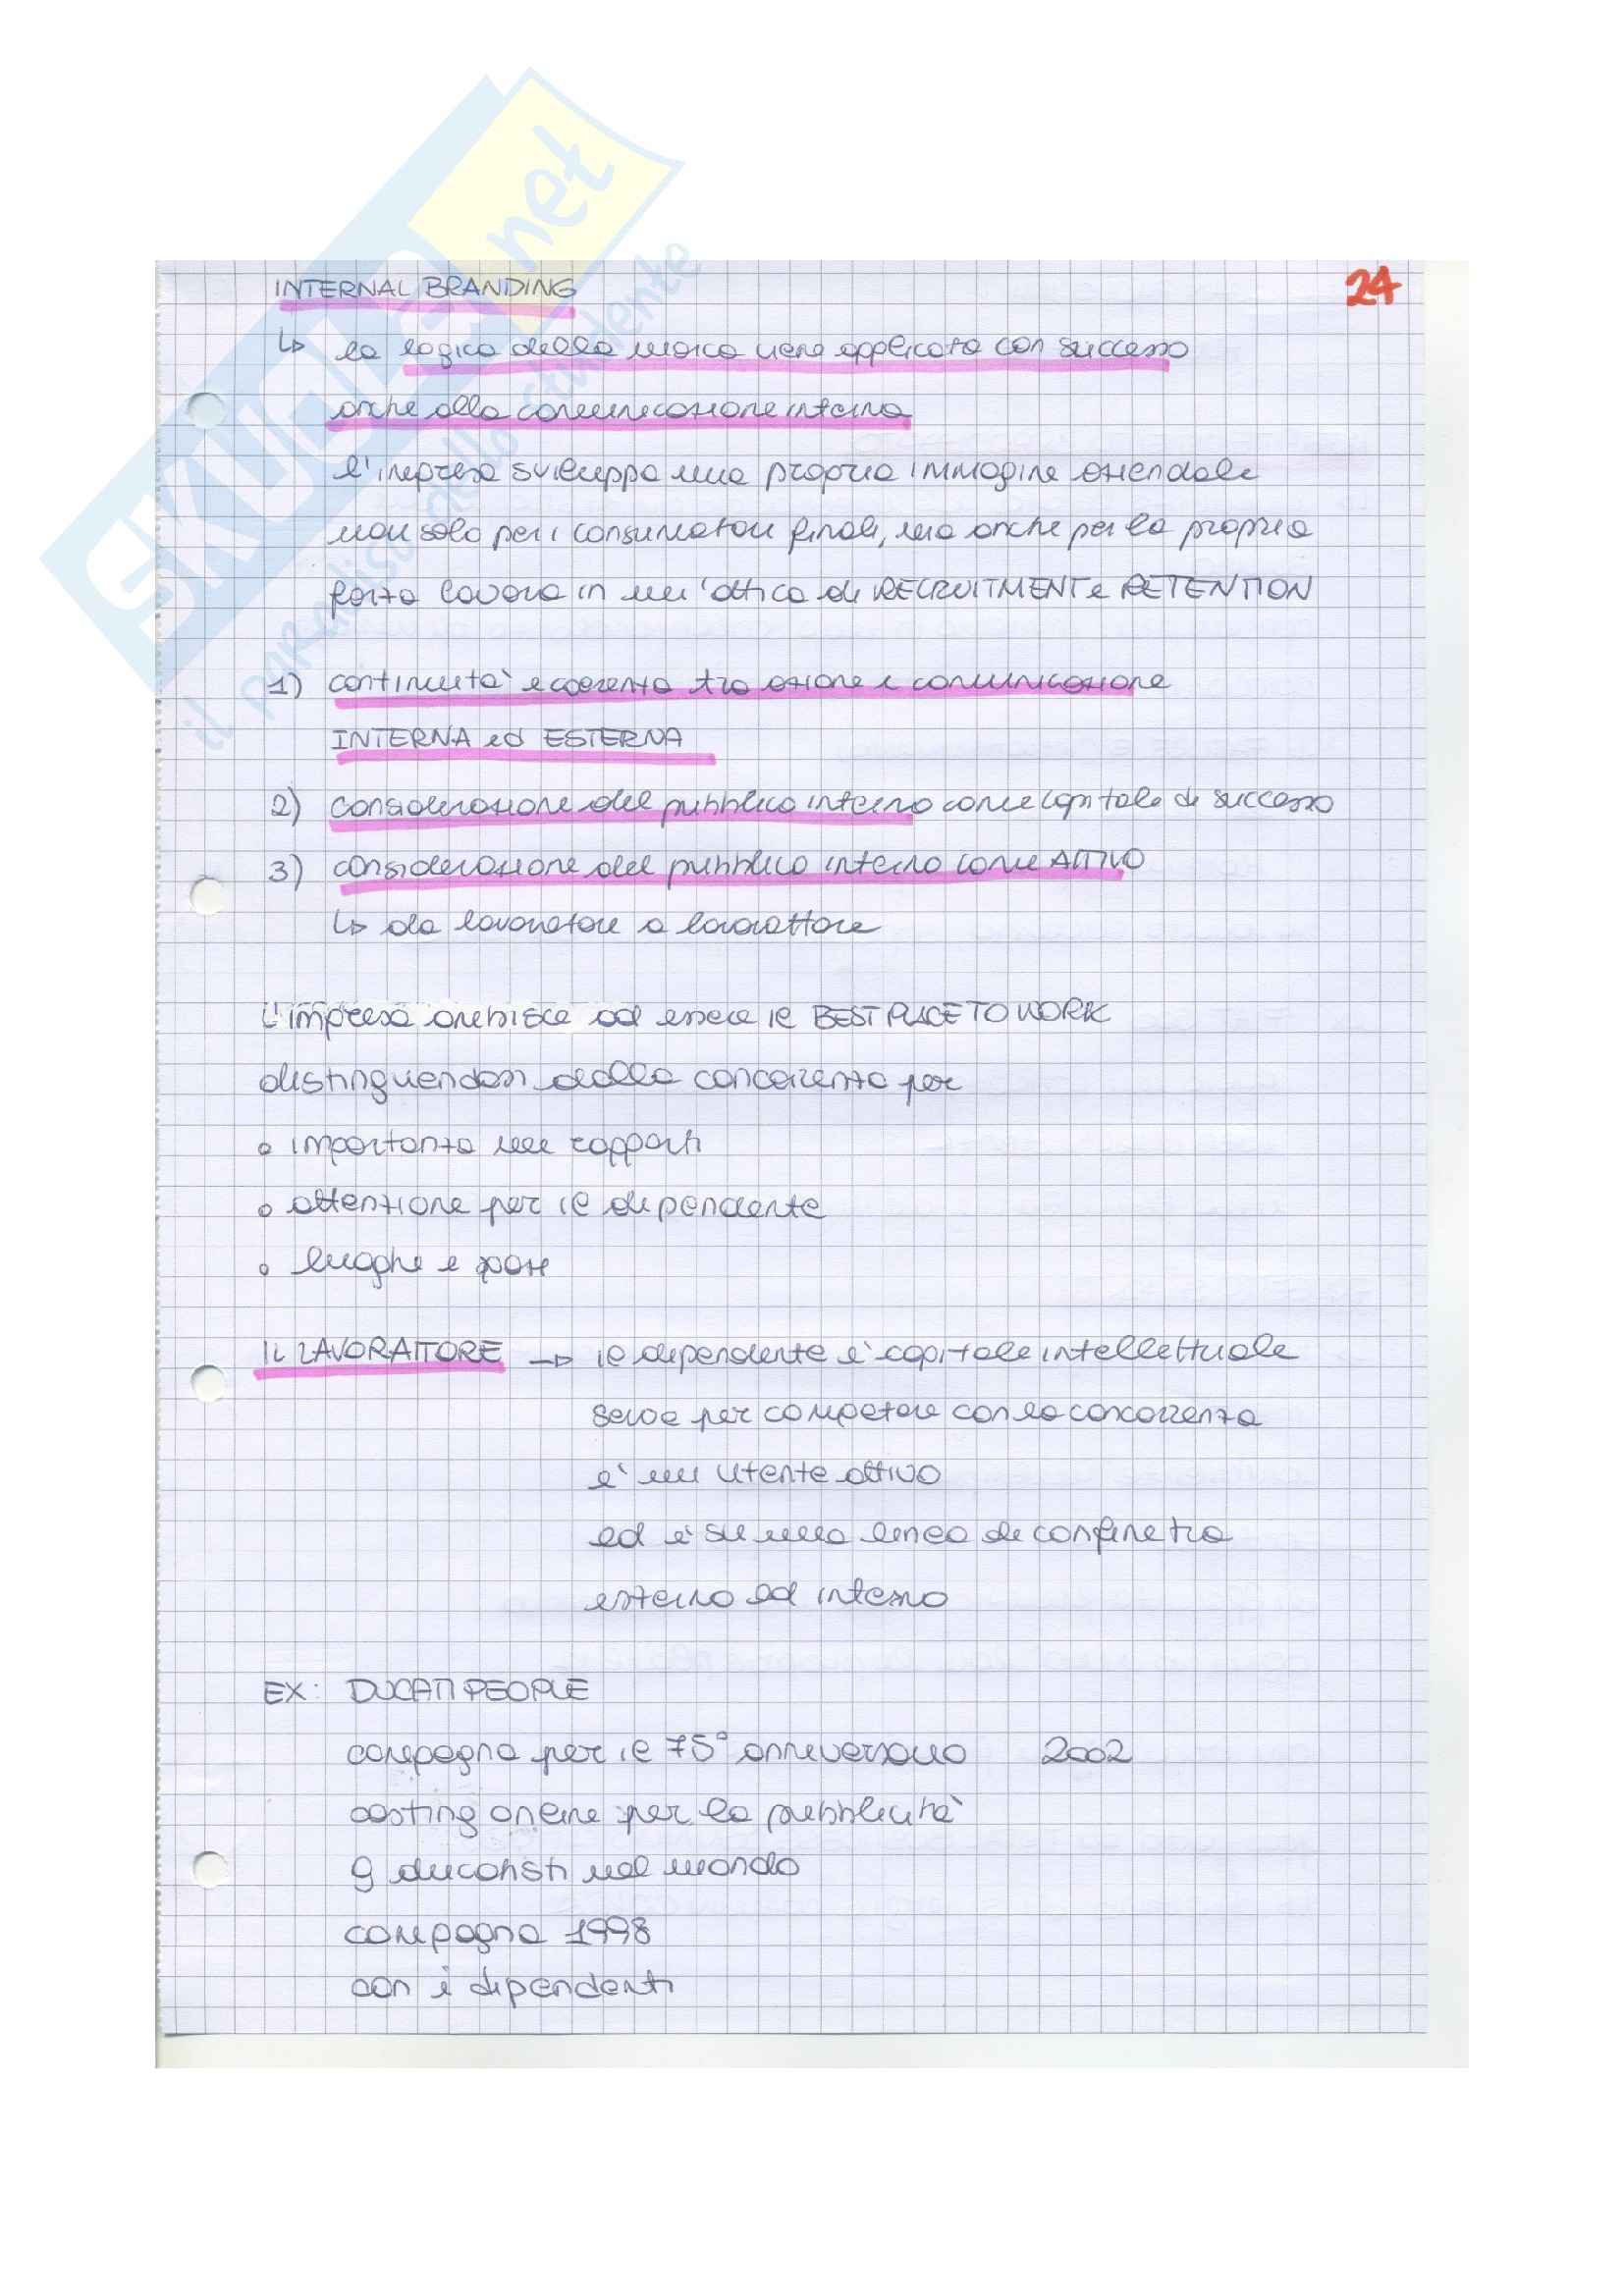 INTERNAL BRANDING
24
↳ la logica della marca viene applicata con successo
anche alla comunicazione interna
l'impresa sviluppa una propria immagine aziendale
non solo per i consumatori finali, ma anche per la propria
forza lavoro in un'ottica di RECRUITMENT e RETENTION
1) continuità e coerenza tra azione e comunicazione
INTERNA ed ESTERNA
2) considerazione del pubblico interno come capitale di successo
3) considerazione del pubblico interno come ATTIVO
↳ da lavoratore a lavorattore
L'impresa ambisce ad essere il BEST PLACE TO WORK
distinguendosi dalla concorrenza per
o importanza nei rapporti
o attenzione per il dipendente
o luoghi e spazi
IL LAVORATTORE → il dipendente è capitale intellettuale
serve per competere con la concorrenza
è un utente attivo
ed è su una linea di confine tra
esterno ed interno
EX: DUCATI PEOPLE
campagna per il 75° anniversario 2002
casting online per la pubblicità
9 ducatisti nel mondo
campagna 1998
con i dipendenti
SKUOLA.net
il paradiso dello studente